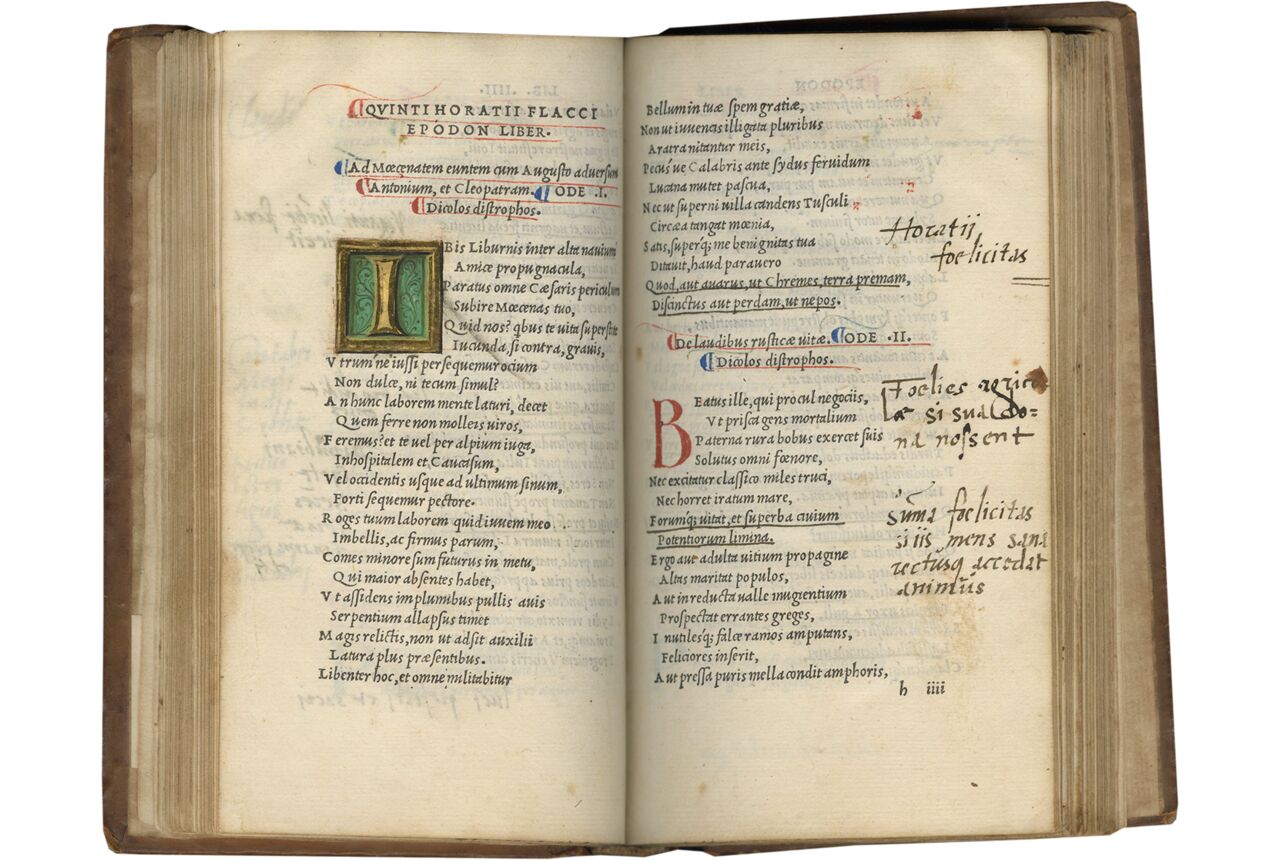 QVINTI HORATII FLACCI
EPODON LIBER.
Ad Mœcenatem euntem cum Augusto adversum
Antonium, et Cleopatram. ODE .I.
Dicolos distrophos.
IBis Liburnis inter alta navium
Amice propugnacula,
Paratus omne Cæsaris periculum
Subire Mœcenas tuo,
Quid nos? qbus te vita superstite
Iucunda, si contra, gravis,
V trum'ne iussi persequemur ocium
Non dulce, ni tecum simul?
A n hunc laborem mente laturi, decet
Quem ferre non molleis viros,
F eremus? et te vel per alpium iuga,
Inhospitalem et Caucasum,
V el occidentis usque ad ultimum sinum,
Forti sequemur pectore.
R oges tuum laborem quid iuvem meo
Imbellis, ac firmus parum,
C omes minore sum futurus in metu,
Qui maior absentes habet,
V t assidens implumbibus pullis avis
Serpentium allapsus timet
M agis relictis, non ut adsit auxilii
Latura plus præsentibus.
L ibenter hoc, et omne militabitur
Bellum in tuæ spem gratiæ,
Non ut iuvencis illigata pluribus
Aratra nitantur meis,
Pecus've Calabris ante sydus fervidum
Lucana mutet pascua,
Nec ut superni villa candens Tusculi
Circæa tangat mœnia,
Satis, superq; me benignitas tua
Ditavit, haud paravero
Quod, aut avarus, ut Chremes, terra premam,
Discinctus aut perdam, ut nepos.
Horatij
foelicitas
De laudibus rusticæ vitæ. ODE .II.
Dicolos distrophos.
BEatus ille, qui procul negociis,
Vt prisca gens mortalium
Paterna rura bobus exercet suis
Solutus omni fœnore,
Nec excitatur classico miles truci,
Nec horret iratum mare,
Forumq; vitat, et superba civium
Potentiorum limina.
Ergo aut adulta vitium propagine
Altas maritat populos,
A ut in reducta valle mugientium
Prospectat errantes greges,
I nutilesq; falce ramos amputans,
Feliciores inserit,
A ut pressa puris mella condit amphoris,
h iiii
Foelies agrico
læ si sua bo=
na nossent
Sūma foelicitas
si iis mens sana
rectusq accedat
animus